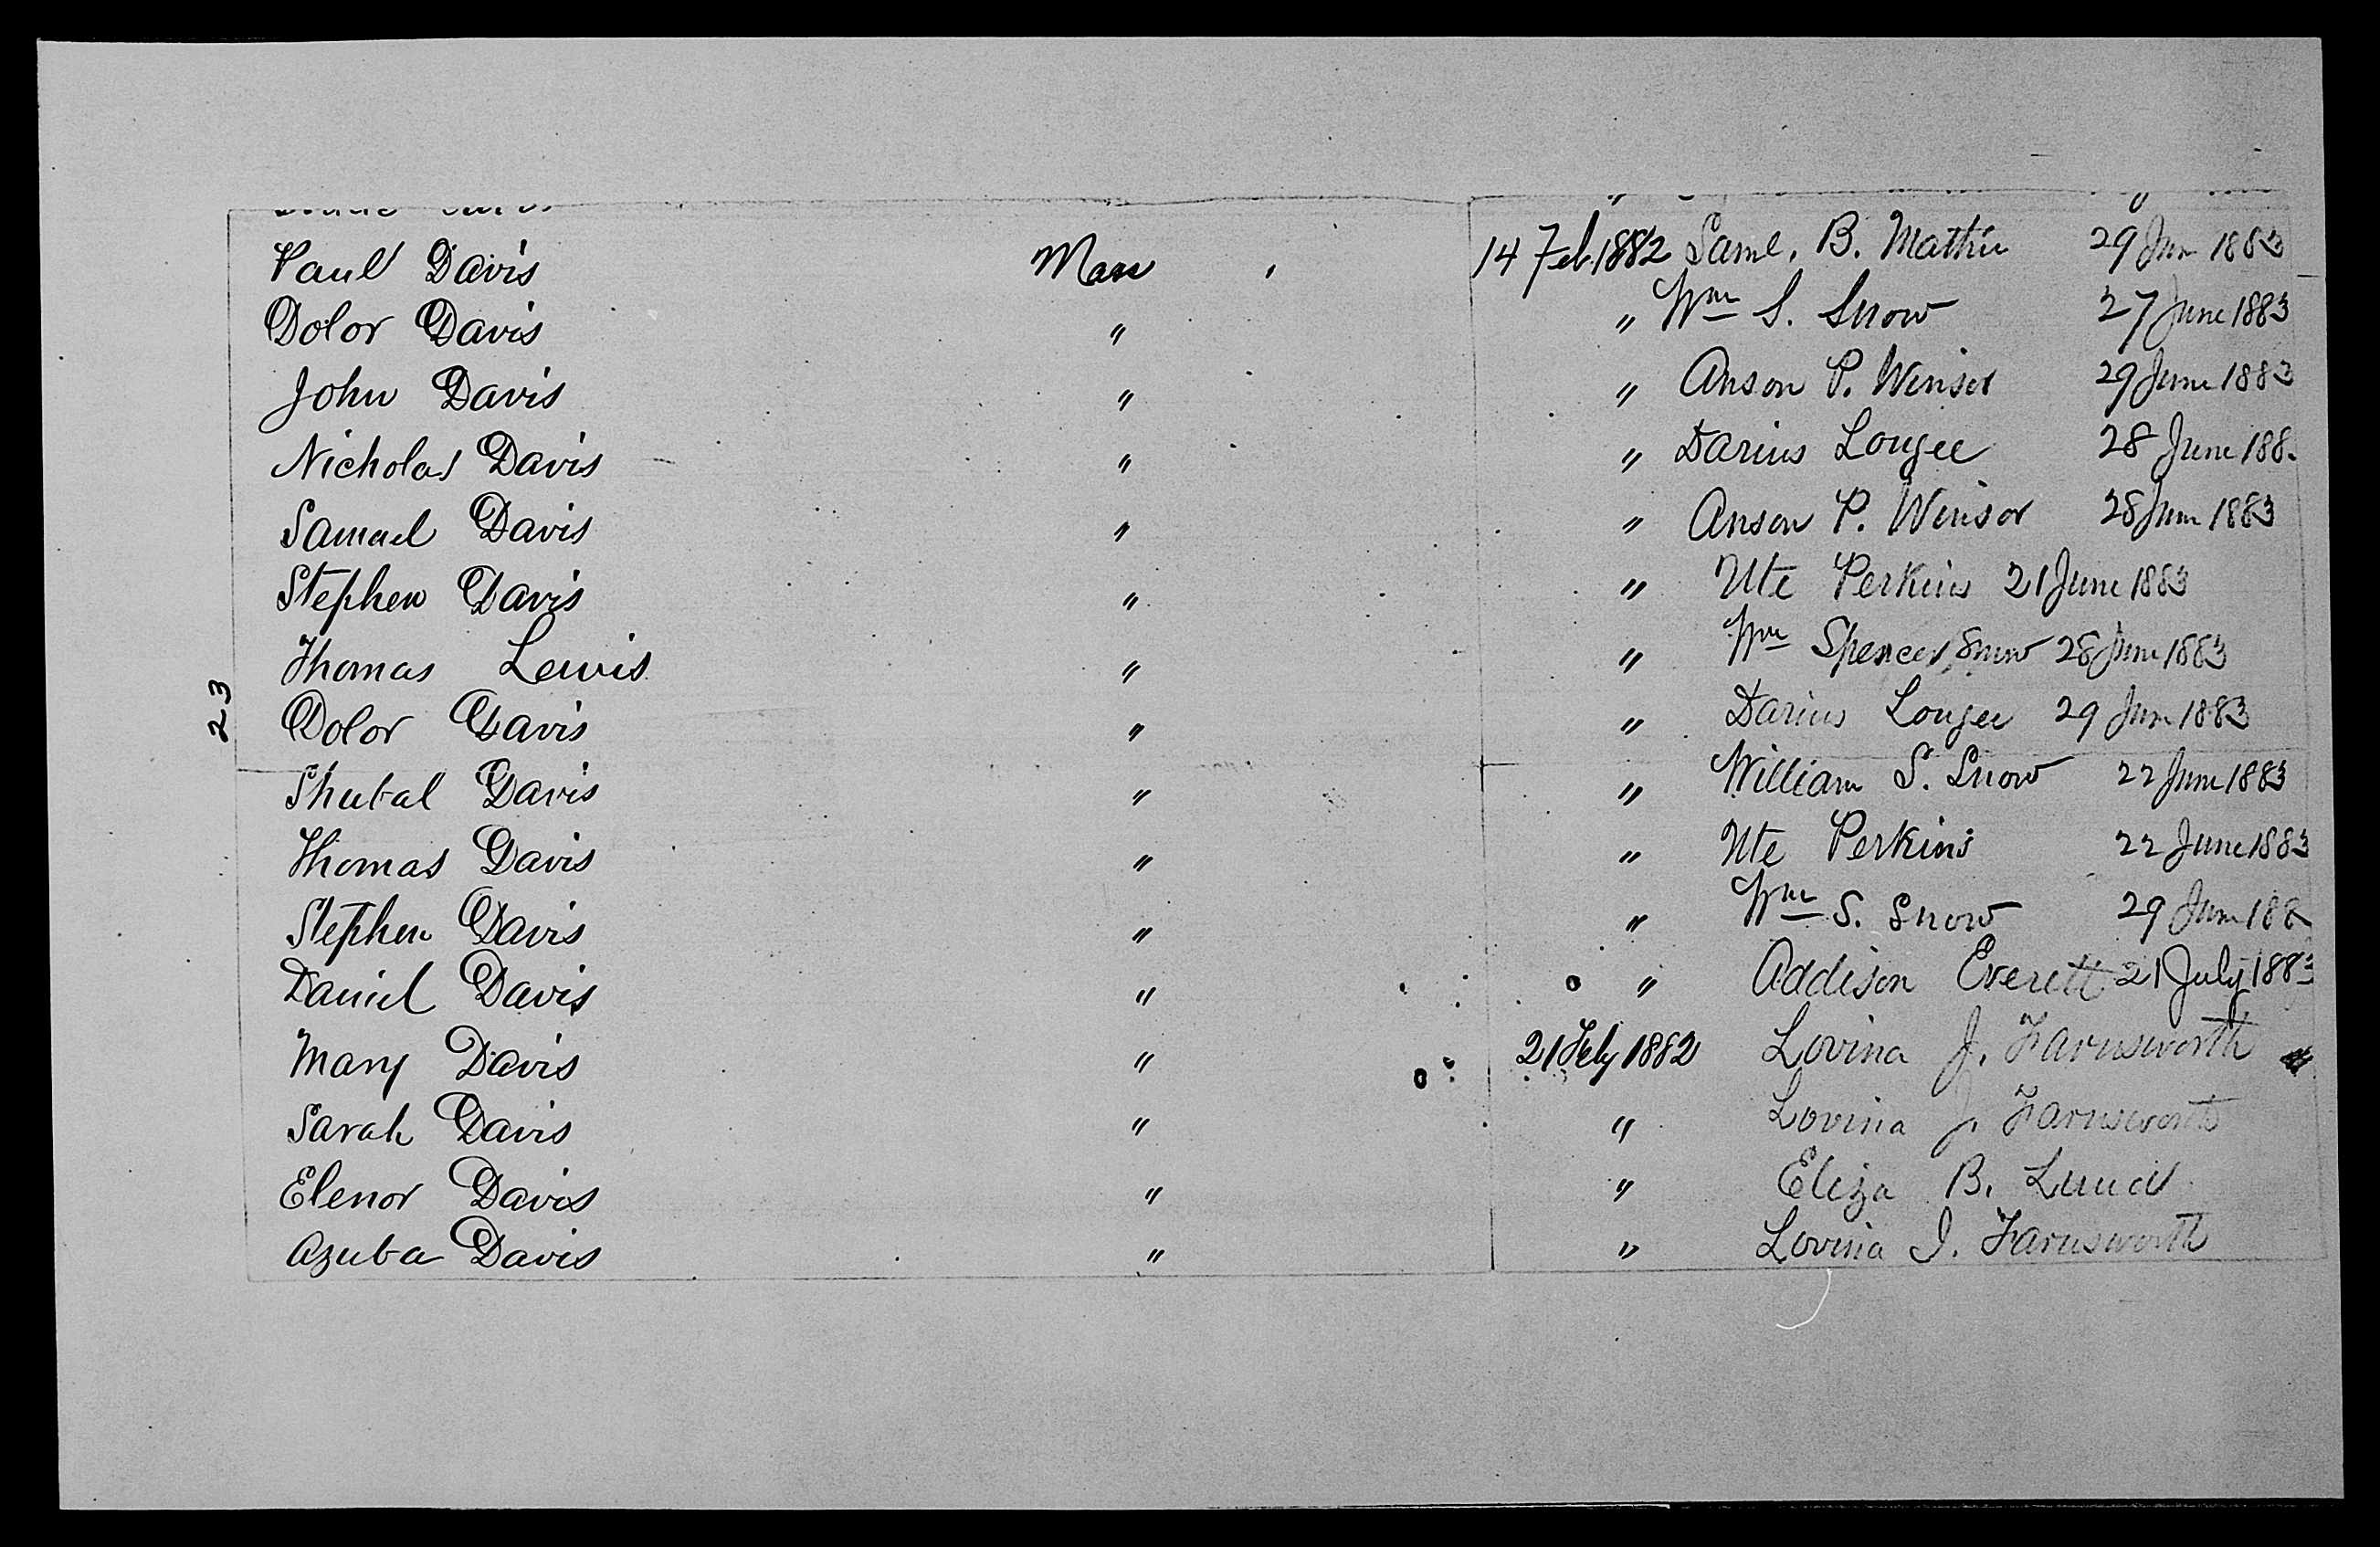 Paul Davis Mass 14 Feb. 1882 Saml. B. Mathis 29 Jun 1883
Dolor Davis " " Wm S. Snow 27 June 1883
John Davis " " Anson P. Winsor 29 June 1883
Nicholas Davis " " Darius Lougee 28 June 188
Samuel Davis " " Anson P. Winsor 28 Jun 1883
Stephen Davis " " Ute Perkins 21 June 1883
Thomas Lewis " " Wm Spencer Snow 28 June 1883
23
Dolor Davis " " Darius Lougee 29 Jun 1883
Shubal Davis " " William S. Snow 22 June 1883
Thomas Davis " " Ute Perkins 22 June 1883
Stephen Davis " " Wm S. Snow 29 Jun 188
Daniel Davis " " Addison Everett 21 July 1883
Mary Davis " 21 Feby 1882 Lovina J. Farnsworth
Sarah Davis " " Lovina J. Farnsworth
Elenor Davis " " Eliza B. Lund
Azuba Davis " " Lovina J. Farnsworth